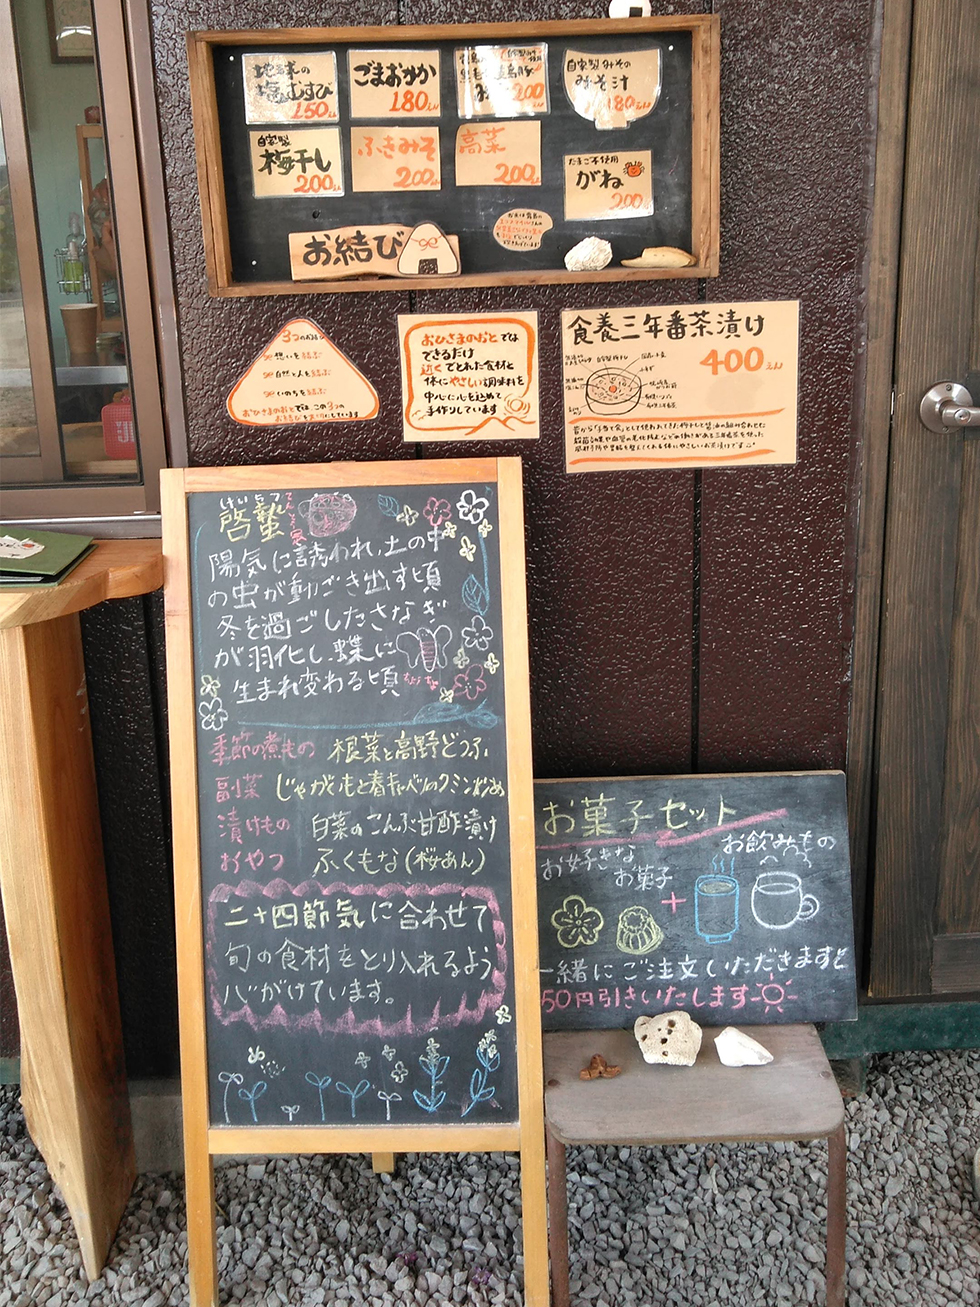 地球の
塩むすび
150えん
ごまおかか
180えん
200
自家製みその
みそ汁
180えん
自家製
梅干し
200えん
ふきみそ
200えん
高菜
200えん
たまご不使用
がね
200えん
お結び
3つのお結び
想いを結ぶ
自然と人を結ぶ
いのちを結ぶ
おひさまのおとでは、この3つの
お結びを大切にしています
おひさまのおとでは
できるだけ
近くでとれた食材と
体にやさしい調味料を
中心に心を込めて
手作りしています
食養三年番茶漬け
400えん
けいちつ
啓蟄
陽気に誘われ、土の中
の虫が動ごき出す頃
冬を過ごしたさなぎ
が羽化し、蝶に
生まれ変わる頃
季節の煮もの 根菜と高野どうふ
副菜 じゃがいもと春キャベツのクミン炒め
漬けもの 白菜のこんぶ甘酢漬け
おやつ ふくもな(桜あん)
二十四節気に合わせて
旬の食材をとり入れるよう
心がけています。
お菓子セット
お好きな
お菓子
+
お飲みもの
一緒にご注文いただきますと
50円引きいたします